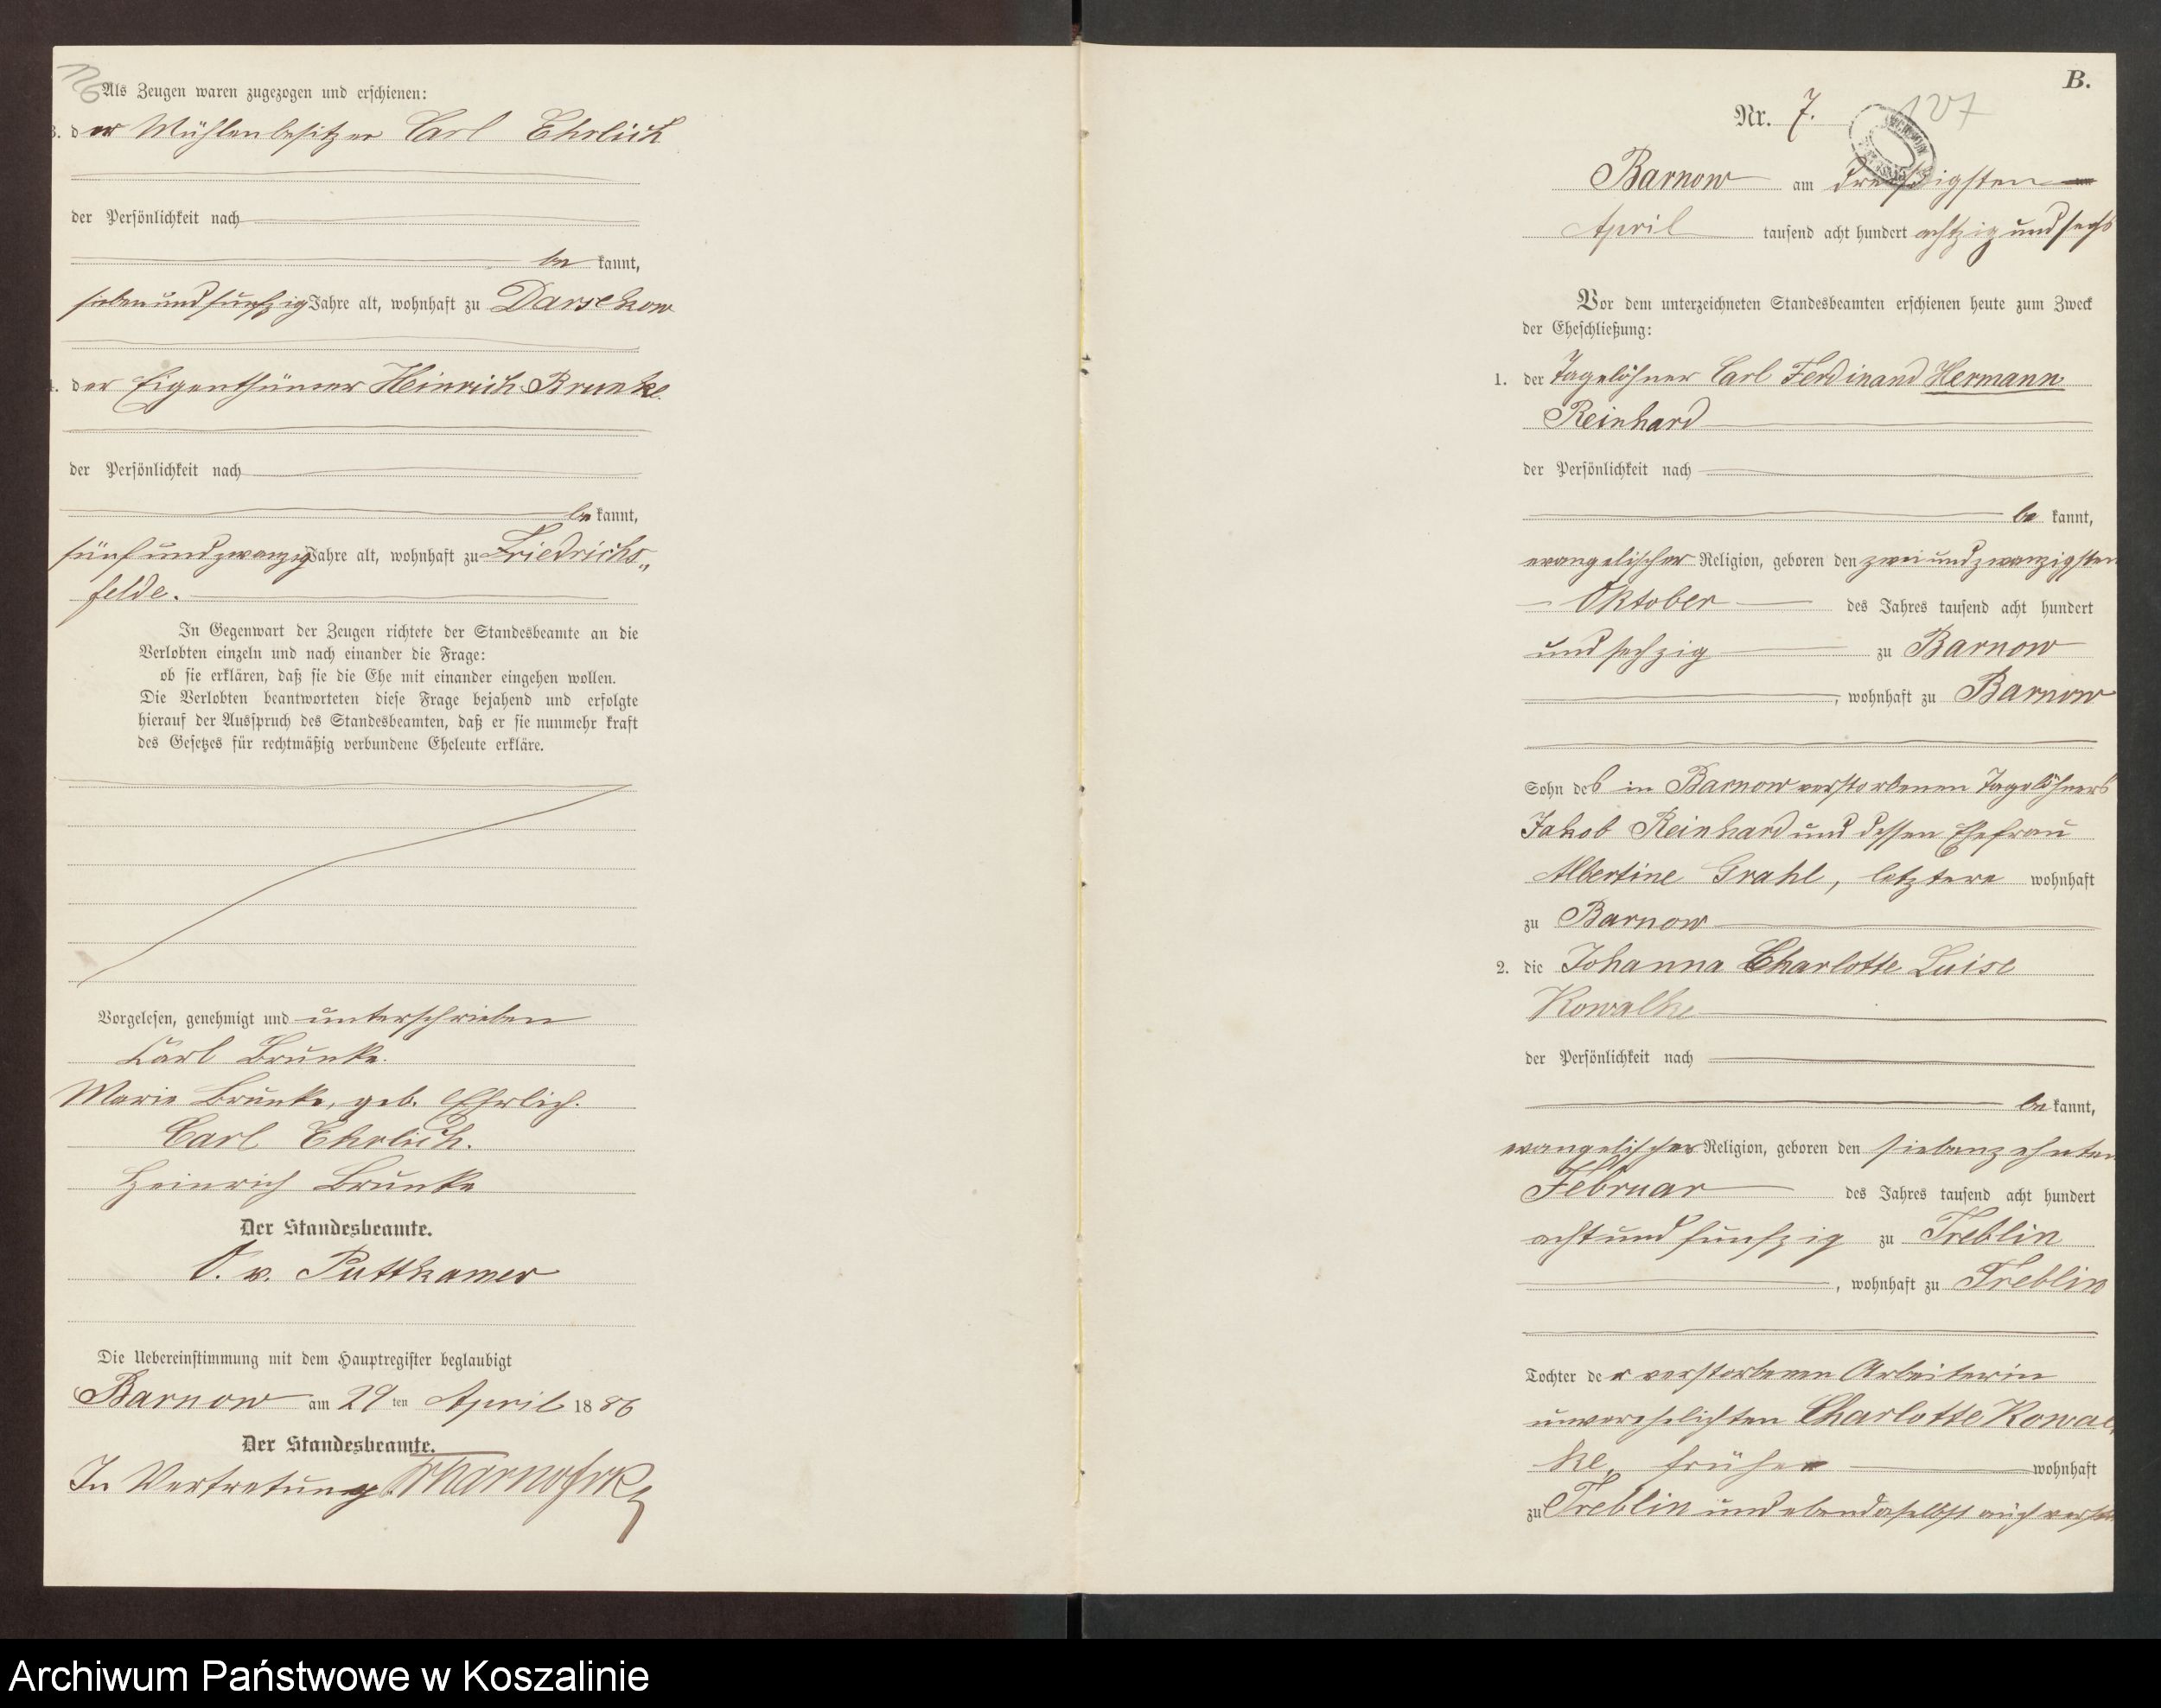 126
Als Zeugen waren zugezogen und erschienen:
3. der Mühlenbesitzer Carl Ehrlich
der Persönlichkeit nach
be kannt,
sieben und funfzig Jahre alt, wohnhaft zu Darsekow
4. der Eigenthümer Heinrich Brunke
der Persönlichkeit nach
be kannt,
fünf und zwanzig Jahre alt, wohnhaft zu Friedrichs„
felde.
In Gegenwart der Zeugen richtete der Standesbeamte an die
Verlobten einzeln und nach einander die Frage:
ob sie erklären, daß sie die Ehe mit einander eingehen wollen.
Die Verlobten beantworteten diese Frage bejahend und erfolgte
hierauf der Ausspruch des Standesbeamten, daß er sie nunmehr kraft
des Gesetzes für rechtmäßig verbundene Eheleute erkläre.
Vorgelesen, genehmigt und unterschrieben
Carl Brunke.
Marie Brunke, geb. Ehrlich.
Carl Ehrlich.
Heinrich Brunke
Der Standesbeamte.
v. Puttkamer
Die Uebereinstimmung mit dem Hauptregister beglaubigt
Barnow am 29 ten April 18 86
Der Standesbeamte.
In Vertretung
B.
Nr. 7.
127
Barnow am dreißigsten
April tausend acht hundert achtzig und sechs
Vor dem unterzeichneten Standesbeamten erschienen heute zum Zweck
der Eheschließung:
1. der Tagelöhner Carl Ferdinand Hermann
Reinhard
der Persönlichkeit nach
be kannt,
evangelischer Religion, geboren den zwei und zwanzigsten
Oktober des Jahres tausend acht hundert
und sechzig zu Barnow
, wohnhaft zu Barnow
Sohn des in Barnow verstorbenen Tagelöhners
Jakob Reinhard und dessen Ehefrau
Albertine Grahl, letztere wohnhaft
zu Barnow
2. die Johanna Charlotte Luise
Kowalke
der Persönlichkeit nach
be kannt,
evangelischer Religion, geboren den siebenzehnten
Februar des Jahres tausend acht hundert
acht und funfzig zu Treblin
, wohnhaft zu Treblin
Tochter der verstorbenen Arbeiterin
unverehelichten Charlotte Kowal
ke, früher wohnhaft
zu Treblin und ebendaselbst auch
Archiwum Państwowe w Koszalinie